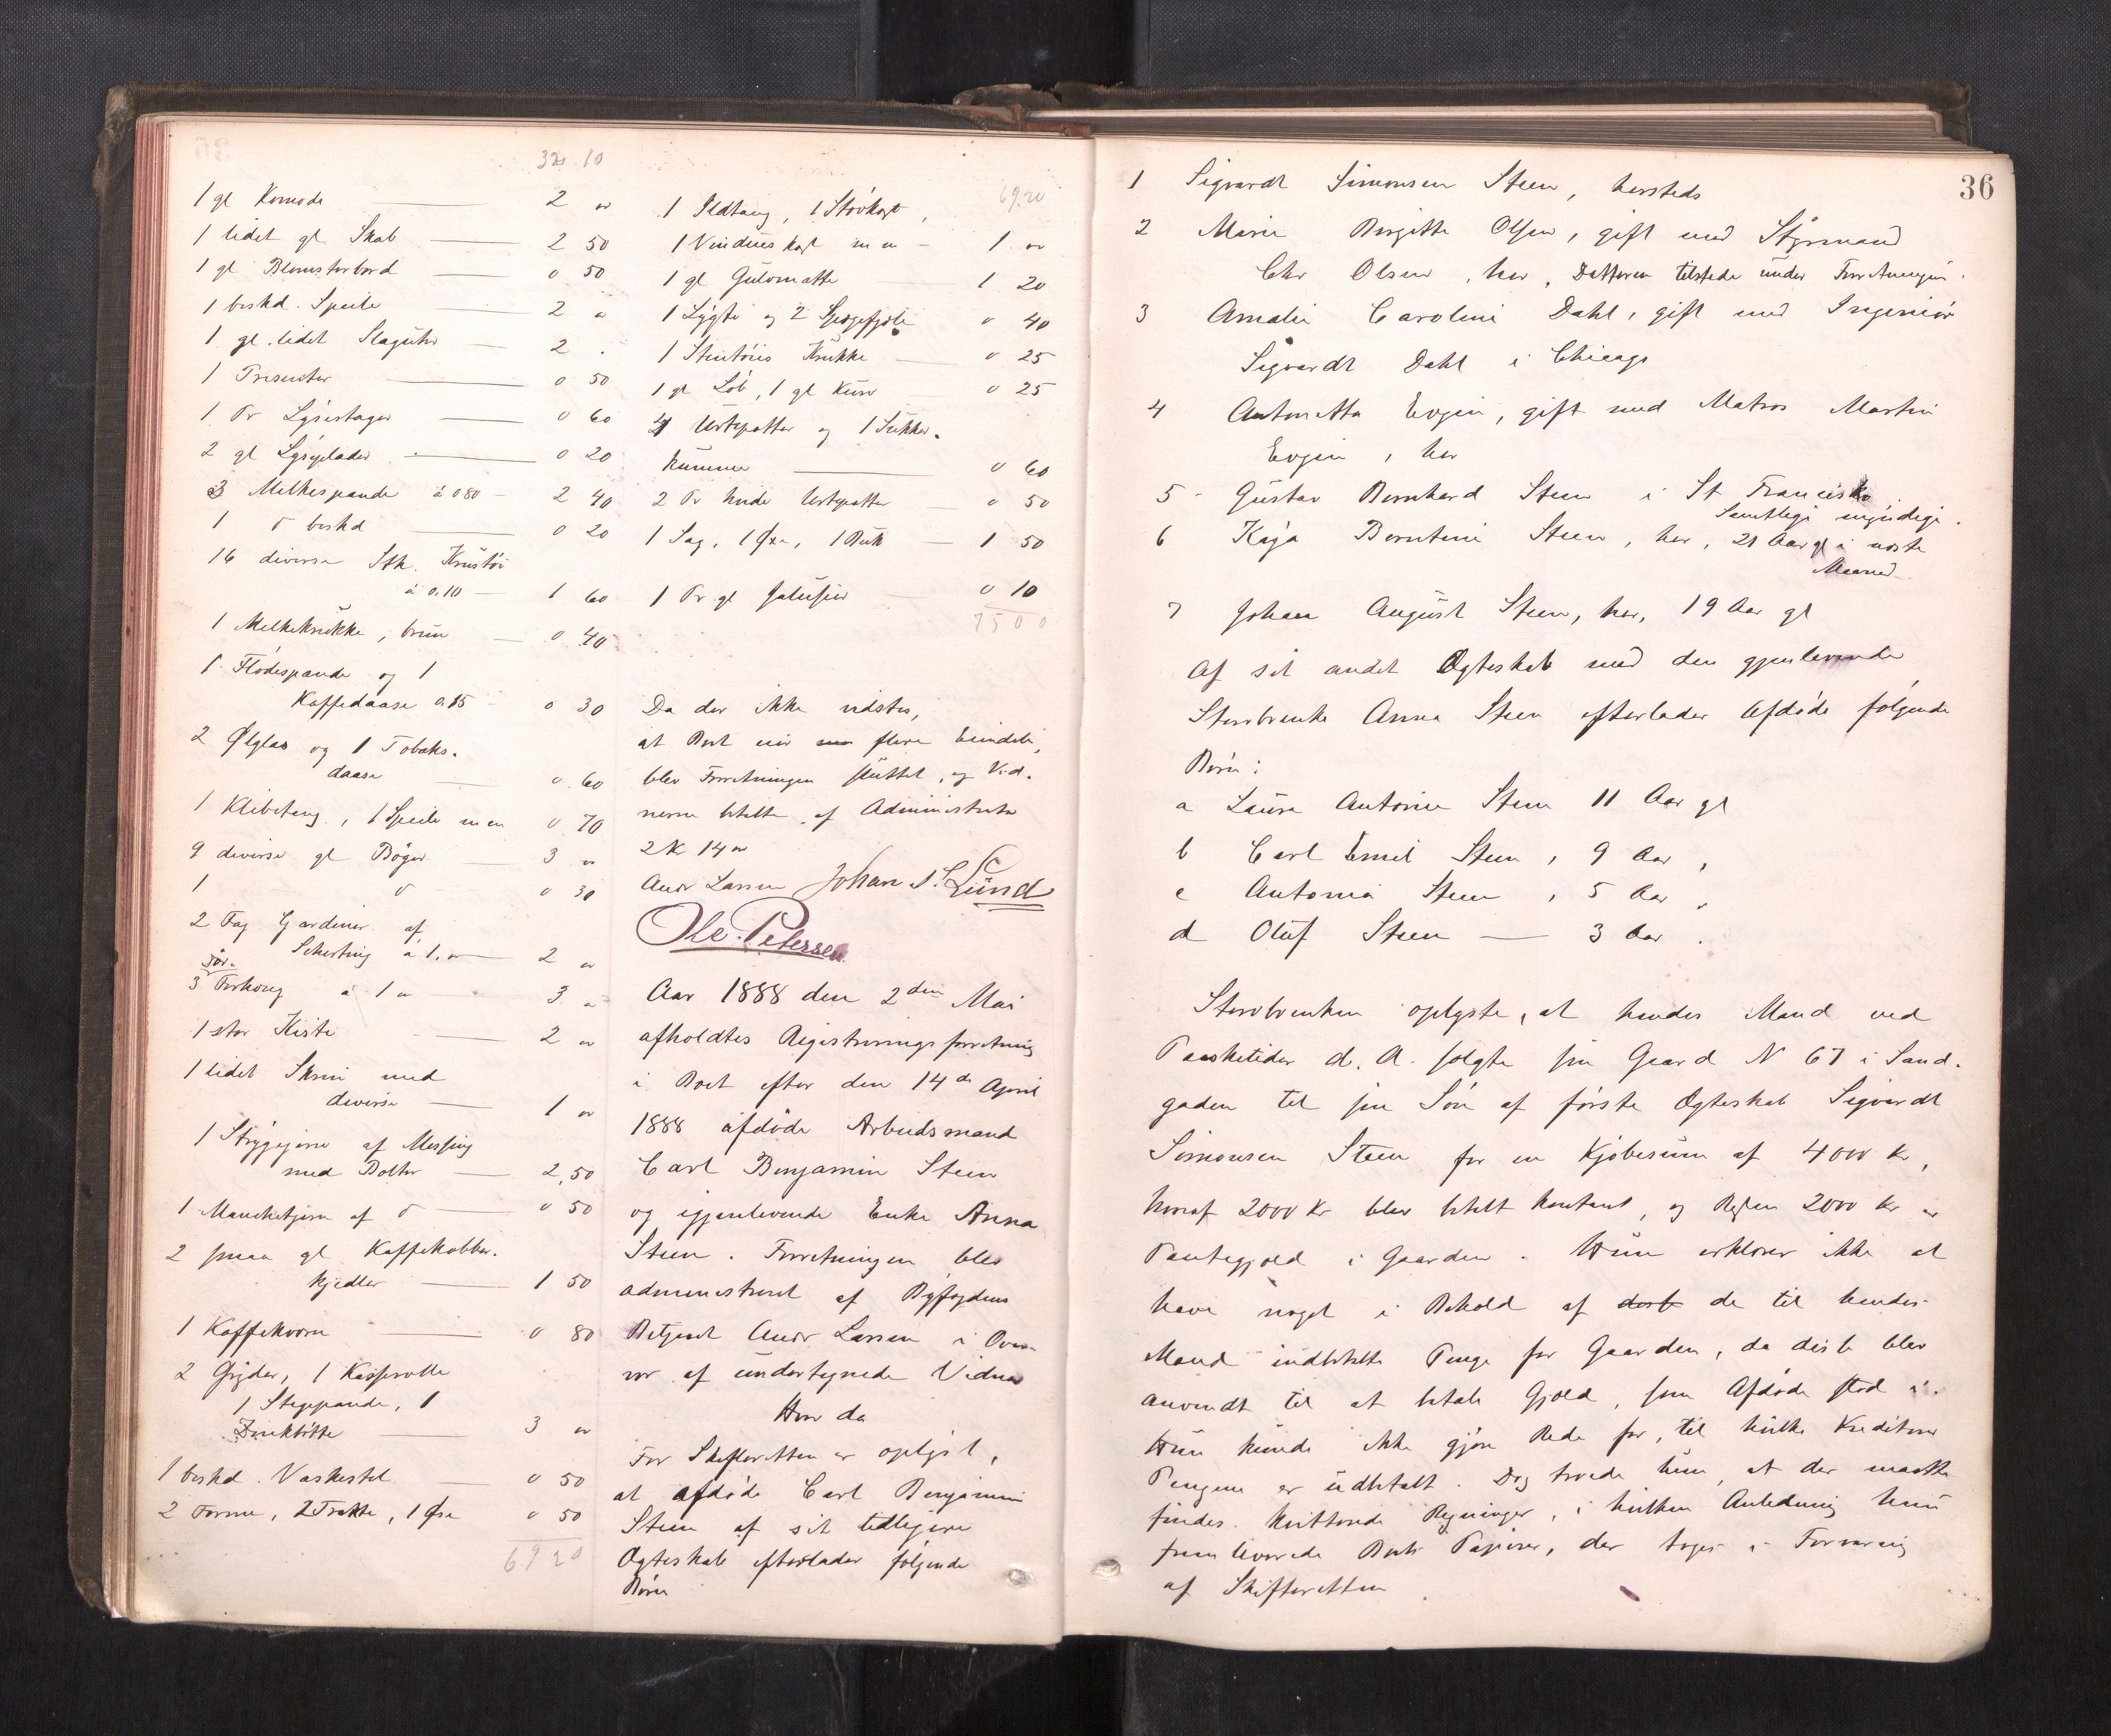 32 10
1 gl Komode 2 "
1 lidet gl Skab 2 50
1 gl Blomsterbord 0 50
1 beskd. Speile 2 "
1 gl. lidet Slaguhr 2 .
1 Presenter 0 50
1 Pr Lysestager 0 60
2 gl Lyseplader 0 20
3 Melkespande à 0 80 2 40
1 do beskd 0 20
16 diverse Stk. Krustøi
à 0.10 1 60
1 Melkekrukke, brun 0 40
1 Flødespande og 1
Kaffedaase 0.15 0 30
2 Ølglas og 1 Tobaks-
daase 0 60
1 Klibetang, 1 Speile m m 0 70
9 diverse gl Bøger 3 "
1 do 0 30
2 Fag Gardiner af
Schirting à 1. " 2 "
3 Forhæng à 1 " 3 "
1 stor Kiste 2 "
1 lidet Skrin med
diverse 1 "
1 Strygejern af Messing
med Bolter 2,50
1 Manchetjern af do 0 50
2 smaa gl Kaffekobber-
kjedler 1 50
1 Kaffekværn 0 80
2 Gryder, 1 Kasserolle
1 Stegpande, 1
Zinkbøtte 3 "
1 beskd. Vaskestel 0 50
2 Forme, 2 Trakte, 1 Øse 0 50
69 20
69.20
1 Ildtang, 1 Støvkost,
1 Vindueskost m m 1 "
1 gl Gulvmatte 1 20
1 Lygte og 2 Spegefjæle 0 40
1 Stentøis Krukke 0 25
1 gl Løb, 1 gl Kurv 0 25
4 Urtepotter og 1 Sukker-
kumme 0 60
2 Pr hvide Urtepotter 0 50
1 Sag, 1 Øxe, 1 Buk 1 50
1 Pr gl Jalusier 0 10
75 0 0
Da der ikke vidstes,
at Boet eier flere Eiendele,
blev Forretningen sluttet, og Vid-
nerne betalte af Administrator
2 K 14 ør
Andr Larsen Johan S. Lund
Ole Petersen
Aar 1888 den 2den Mai
afholdtes Registreringsforretning
i Boet efter den 14de April
1888 afdøde Arbeidsmand
Carl Benjamin Steen
og igjenlevende Enke Anna
Steen. Forretningen blev
administreret af Byfogdens
Betjent Andr Larsen i Over-
vær af undertegnede Vidner
Hvor da
For Skifteretten er oplyst,
at afdøde Carl Benjamin
Steen af sit tidligere
Ægteskab efterlader følgende
Børn
36
1 Sigvardt Simonsen Steen, hersteds
2 Marie Birgitte Olsen, gift med Styrmand
Chr Olsen, her, Datteren tilstede under Forretningen.
3 Amalie Caroline Dahl, gift med Ingeniør
Sigvardt Dahl i Chicago
4 Antonetta Evjen, gift med Matros Martin
Evjen, her
5 Gustav Bernhard Steen i St Francisko
Samtlige myndige.
6 Kaja Berntine Steen, her, 21 Aar gl i næste
Maaned
7 Johan August Steen, her, 19 Aar gl
Af sit andet Ægteskab med den gjenlevende
Stervbenke Anna Steen efterlader Afdøde følgende
Børn:
a Laura Antonie Steen 11 Aar gl
b Carl Emil Steen, 9 Aar "
c Antonia Steen, 5 Aar "
d Oluf Steen 3 Aar .
Stervbenken oplyste, at hendes Mand ved
Paasketider d. A. solgte sin Gaard N 67 i Sand-
gaden til sin Søn af første Ægteskab Sigvardt
Simonsen Steen for en Kjøbesum af 4000 Kr,
hvoraf 2000 Kr blev betalt kontant, og Resten 2000 Kr er
Pantegjæld i Gaarden. Hun erklærer ikke at
have noget i Behold af de til hendes
Mand indbetalte Penge for Gaarden, da disse blev
anvendt til at betale Gjæld, som Afdøde stod i.
Hun kunde ikke gjøre Rede for, til hvilke Kreditorer
Pengene er udbetalt. Dog troede hun, at der maatte
findes kvitterede Regninger, i hvilken Anledning hun
fremleverede Boets Papirer, der toges i Forvaring
af Skifteretten